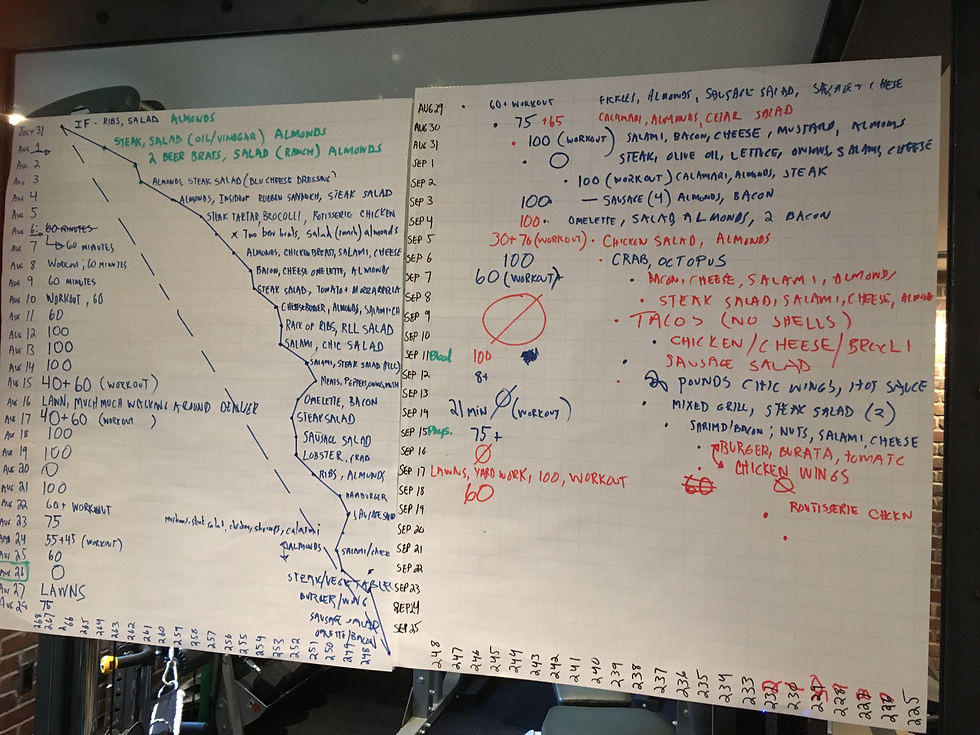 JULY 31 IF - RIBS, SALAD ALMONDS
AUG 1 STEAK, SALAD (OIL/VINEGAR) ALMONDS
AUG 2 2 BEER BRATS, SALAD (RANCH) ALMONDS
AUG 3 ALMONDS, STEAK SALAD (BLU CHEESE DRESSING)
AUG 4 ALMONDS, INSIDE OF RUEBEN SANDWICH, STEAK SALAD
AUG 5 STEAK TARTAR BROCOLLI, ROTISSERIE CHICKEN
AUG 6 60 MINUTES x Two beer brats, Salad (ranch) almonds
AUG 7 60 MINUTES ALMONDS, CHICKEN BREAST, SALAMI, CHEESE
AUG 8 WORKOUT, 60 MINUTES BACON, CHEESE OMELETTE, ALMONDS
AUG 9 60 MINUTES STEAK SALAD, TOMATO + MOZZARELLA
AUG 10 WORKOUT, 60 ALMONDS, SALAMI
AUG 11 60 RACK OF RIBS, RLL SALAD
AUG 12 100 SALAMI, CHIC SALAD
AUG 13 100 SALAMI, STEAK SALAD (RLL)
AUG 14 100 MEATS, PEPPERS,
AUG 15 40+60 (WORKOUT) OMELETTE, BACON
AUG 16 LAWN, MUCH MUCH WALKING AROUND DENVER
AUG 17 40+60 (WORKOUT) STEAK SALAD
AUG 18 100 SAUSAGE SALAD
AUG 19 100 LOBSTER, CRAB
AUG 20 0 RIBS, ALMONDS
AUG 21 100 HAMBURGER
AUG 22 60+ WORKOUT
AUG 23 75 steak salad, chicken, shrimps, calamari
AUG 24 55+45 (WORKOUT) ALMONDS SALAMI/CHEESE
AUG 25 60
AUG 26 0 STEAK/VEGETABLES
AUG 27 LAWNS BURGER/WING
AUG 28 75 SAUSAGE SALAD
OMELETTE/BACON
268 267 266 265 264 263 262 261 260 259 258 257 256 255 254 253 252 251 250 249 248
AUG 29 60+ WORKOUT PICKLES, ALMONDS, SAUSAGE SALAD, SAUSAGE + CHEESE
AUG 30 75 +65 CALAMARI, ALMONDS, CESAR SALAD
AUG 31 100 (WORKOUT) SALAMI, BACON, CHEESE, MUSTARD, ALMONDS
SEP 1 0 STEAK, OLIVE OIL, LETTICE, ONIONS, SALAMI, CHEESE
SEP 2 100 (WORKOUT) CALAMARI, ALMONDS, STEAK
SEP 3 100 — SAUSAGE (4) ALMONDS, BACON
SEP 4 100 OMELETTE, SALAD ALMONDS, 2 BACON
SEP 5 30+70 (WORKOUT) CHICKEN SALAD, ALMONDS
SEP 6 100 CRAB, OCTOPUS
SEP 7 60 (WORKOUT) BACON, CHEESE, SALAMI, ALMOND
SEP 8 STEAK SALAD, SALAMI, CHEESE, ALMOND
SEP 9 TACOS (NO SHELLS)
SEP 10 CHICKEN/CHEESE/BROCLI
SEP 11 Blood 100 SAUSAGE SALAD
SEP 12 8+ POUNDS CHIC WINGS, HOT SAUCE
SEP 13 MIXED GRILL, STEAK SALAD (2)
SEP 14 21 MIN (WORKOUT) NUTS, SALAMI, CHEESE
SEP 15 Phys. 75+ BURGER, BURATA, TOMATO
SEP 16 CHICKEN WINGS
SEP 17 LAWNS, YARD WORK, 100, WORKOUT
SEP 18 60 ROUTISSERIE CHCKN
SEP 19
SEP 20
SEP 21
SEP 22
SEP 23
SEP 24
SEP 25
248 247 246 245 244 243 242 241 240 239 238 237 236 235 234 233 225